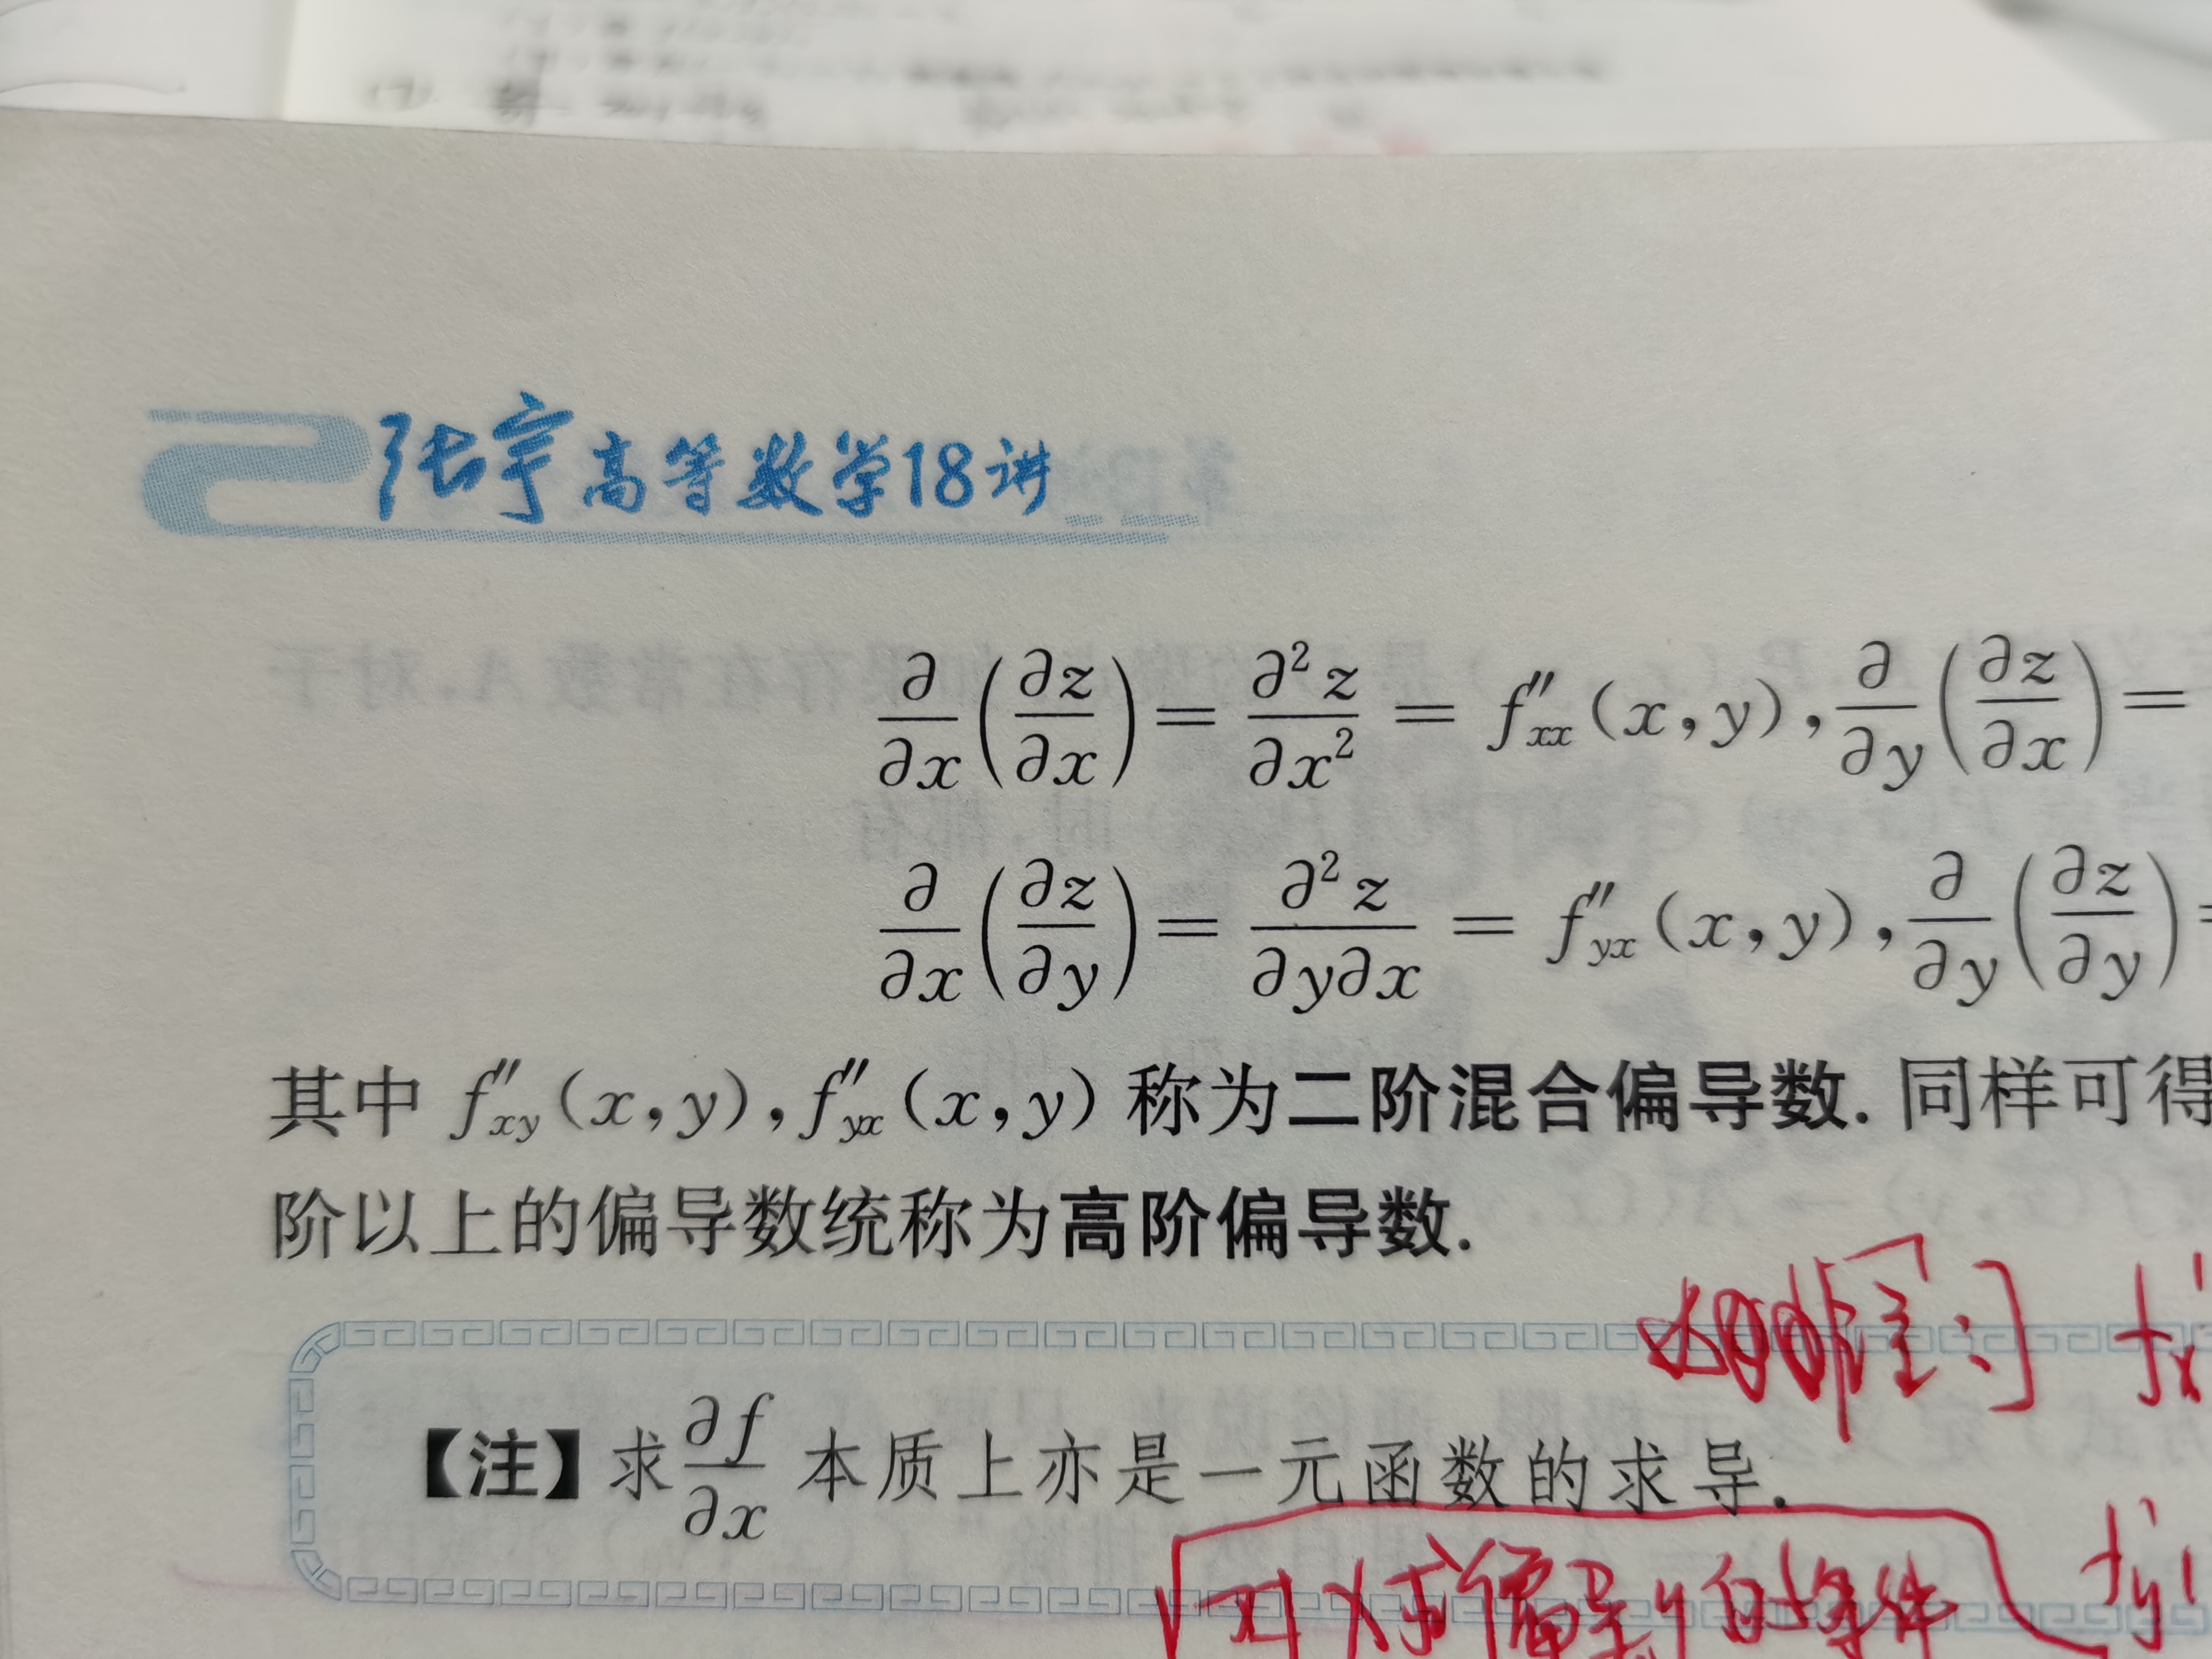 张宇高等数学18讲
∂/∂x(∂z/∂x)=∂²z/∂x²=f″xx(x,y),∂/∂y(∂z/∂x)=
∂/∂x(∂z/∂y)=∂²z/∂y∂x=f″yx(x,y),∂/∂y(∂z/∂y)=
其中 f″xy(x,y),f″yx(x,y)称为二阶混合偏导数.同样可得
阶以上的偏导数统称为高阶偏导数.
注:] f'x
【注】求∂f/∂x 本质上亦是一元函数的求导.
对x求偏导y的条件 f'y